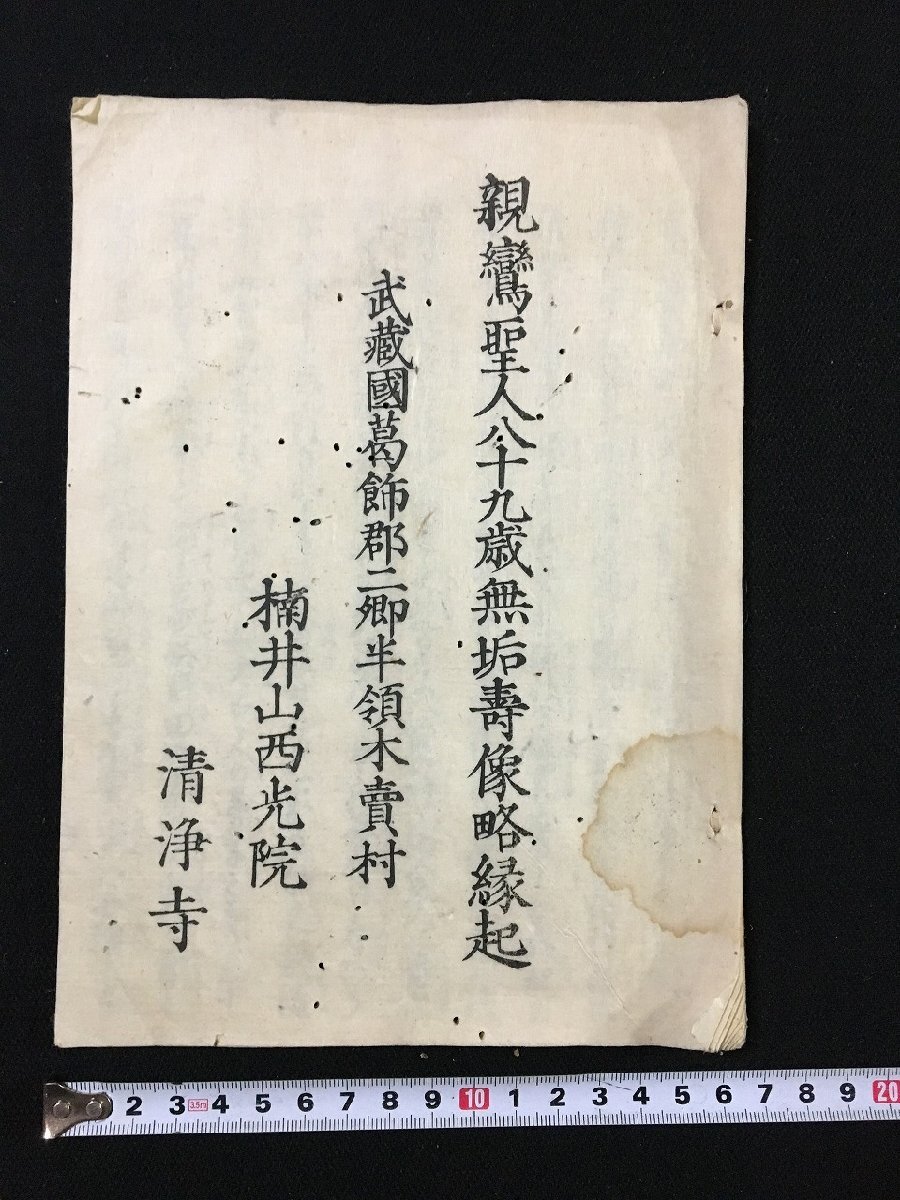 親鸞聖人八十九歳無垢壽像略縁起
武藏國葛飾郡二郷半領木賣村
楠井山西光院
清浄寺
2 3 3.5m 4 5 6 7 8 9 10 1 2 3 4 5 6 7 8 9 20